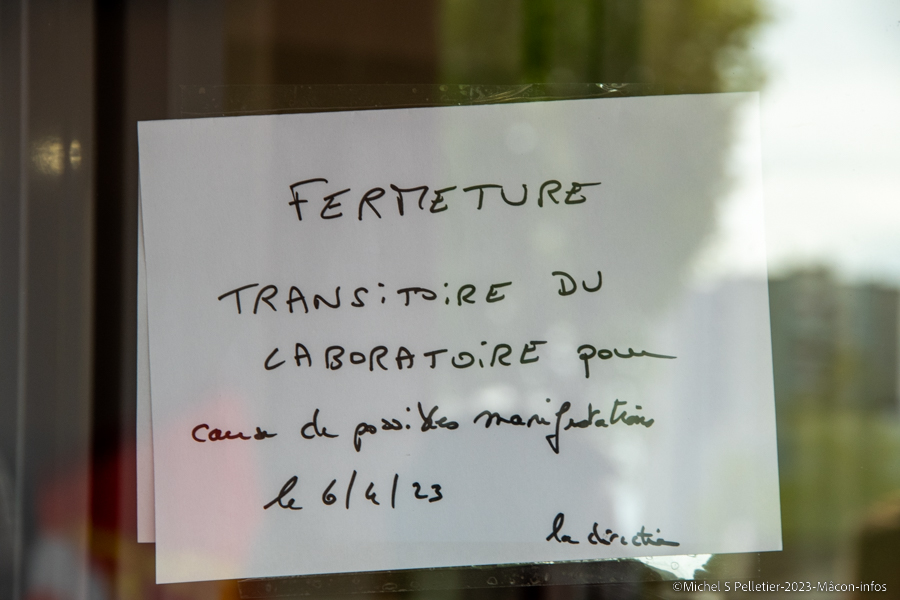 FERMETURE
TRANSiToiRE DU
LABORATOiRE pour
cause de possibles manifestations
le 6/4/23
la direction
©Michel S Pelletier-2023-Mâcon-infos